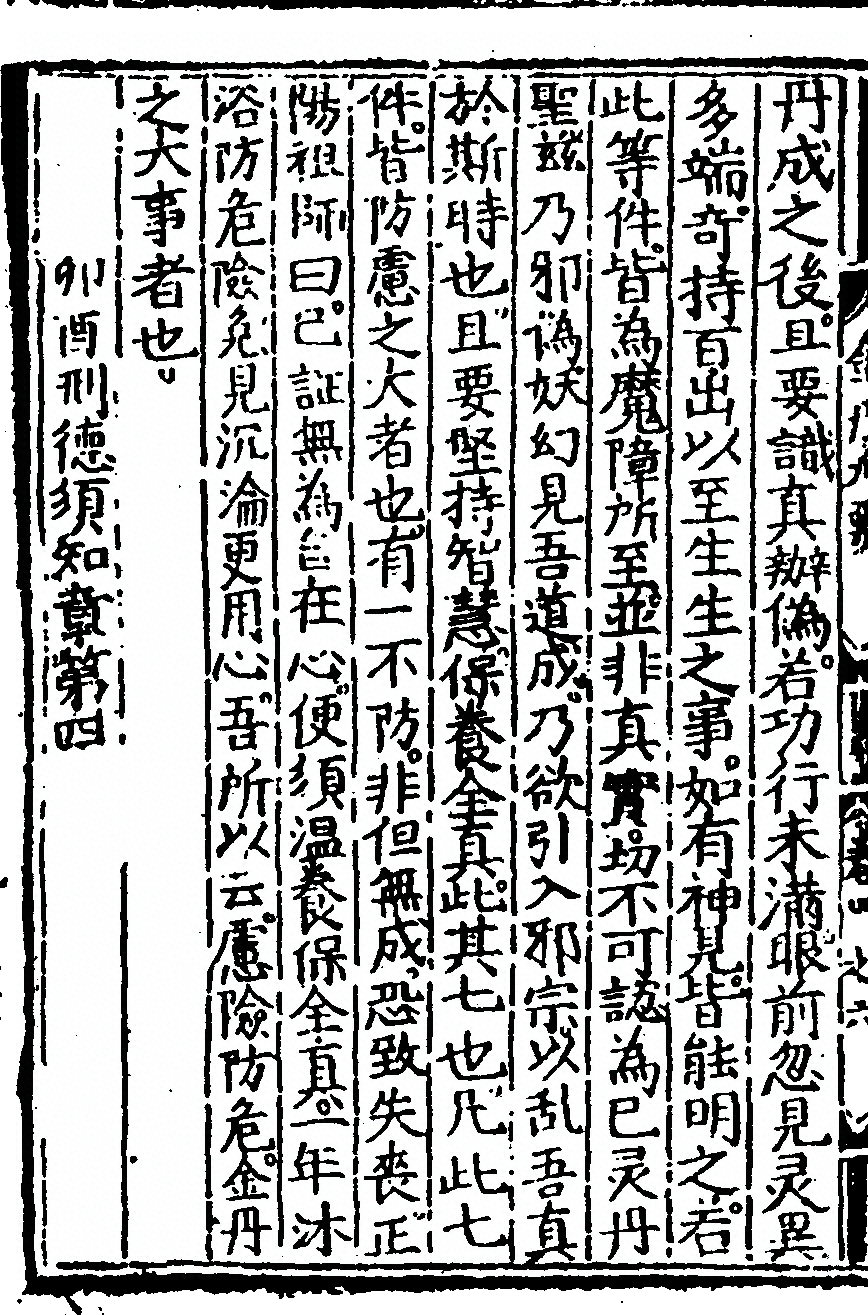 丹成之後。且要識真辦偽。若功行未滿眼前忽見灵異
多端。奇持百出以至生生之事。如有神見。皆能明之。若
此等件。皆為魔障所至。並非真實。切不可認為已灵丹
聖兹乃邪偽妖幻見吾道成。乃欲引入邪宗。以乱吾真
於斯時也。且要堅持智慧。保養全真。此其七也。凡此七
件。皆防慮之大者也。有一不防。非但無成。恐致失喪。正
陽祖師曰。已証無為自在心。便須温養保全真。一年沐
浴防危險。免見沉淪更用心。吾所以云。慮險防危。金丹
之大事者也。
卯酉刑德須知章第四